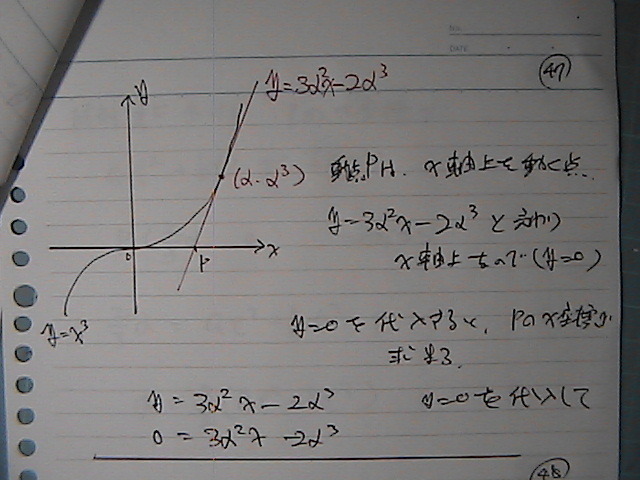 NO.
DATE
47
y
y=3α²x-2α³
(α.α³)
動点Pは、x軸上を動く点.
0
P
x
y=x³
y=3α²x-2α³と
x軸上なので(y=0)
y=0を代入すると、Pのx座標が
求まる.
y=3α²x-2α³
y=0を代入して
0=3α²x-2α³
48